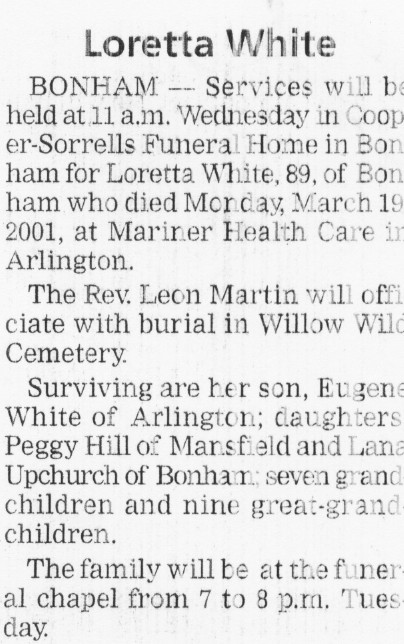 Loretta White
BONHAM — Services will be
held at 11 a.m. Wednesday in Coop
er-Sorrells Funeral Home in Bon
ham for Loretta White, 89, of Bon
ham who died Monday, March 19
2001, at Mariner Health Care in
Arlington.
The Rev. Leon Martin will offi
ciate with burial in Willow Wild
Cemetery.
Surviving are her son, Eugene
White of Arlington; daughters
Peggy Hill of Mansfield and Lana
Upchurch of Bonham; seven grand
children and nine great-grand-
children.
The family will be at the funer-
al chapel from 7 to 8 p.m. Tues-
day.